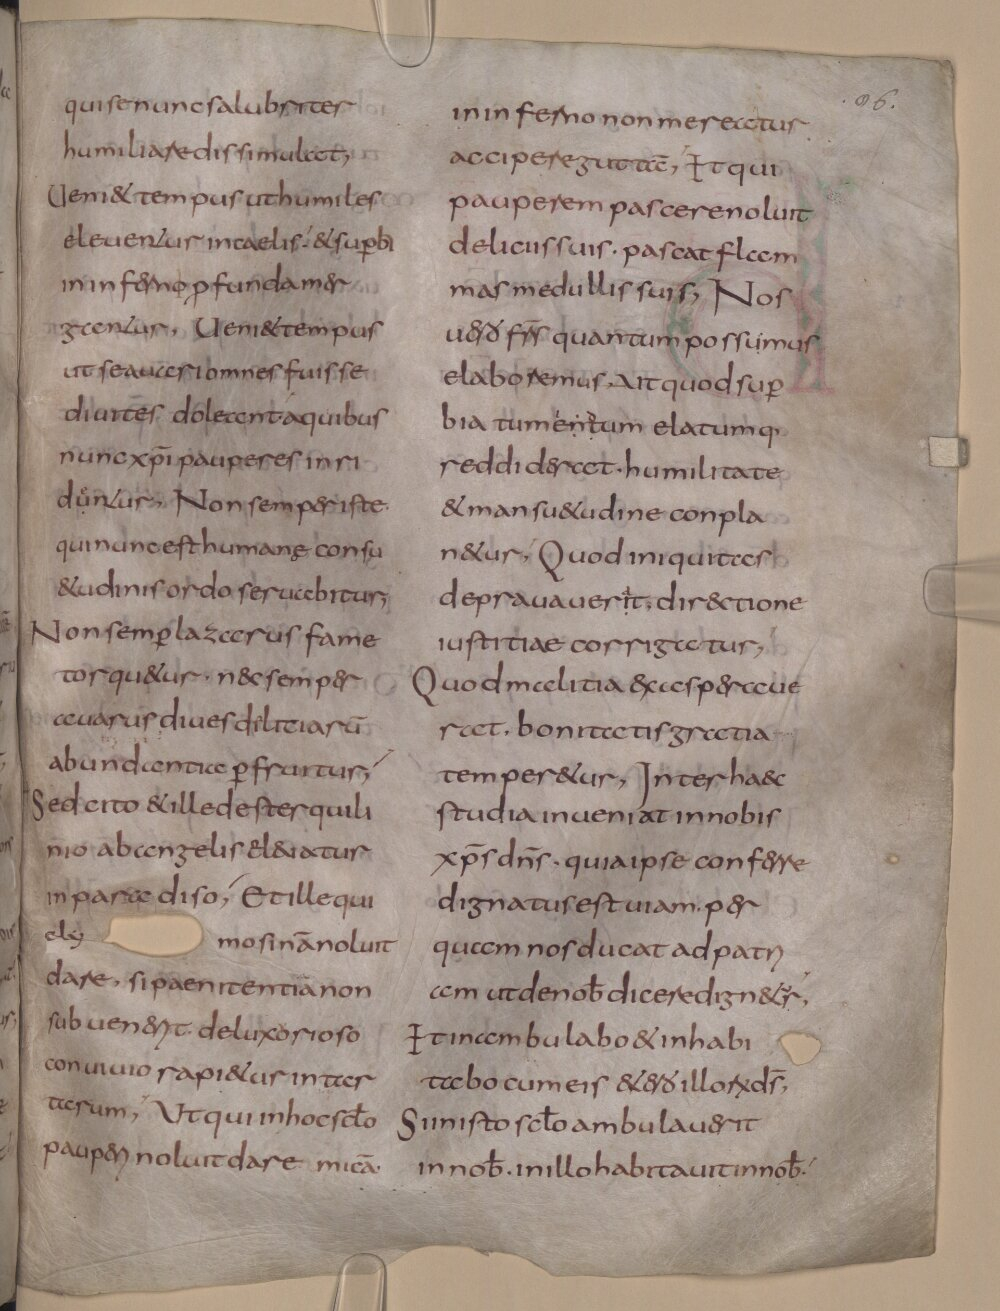 .96.
qui se nunc salubriter
humiliare dissimulat;
Ueni& tempus ut humiles
eleuentur in caelis. & supbi
in inferno pfunda mer
gentur, Ueni& tempus
ut se auari omnes fuisse
diuites doleant a quibus
nunc xp̄i pauperes inri
dentur, Non semper iste
qui nunc est humane consu
&udinis ordo seruabitur;
Non semp lazarus fame
torqu&ur. nec semper
auarus diues diliciarū
abundantia pfruitur;
Sed cito & ille de sterquili
nio ab angelis eleuatur
in paradiso; Et ille qui
ely mosinā noluit
dare, si paenitentiā non
subuenerit. de luxorioso
conuiuio rapi&ur in tar
tarum; Ut qui in hoc sclo
pauperi noluit dare micā.
in inferno non mereatur
accipere guttā; Et qui
pauperem pascere noluit
deliciis suis. pascat flam
mas medullis suis; Nos
uero frs quantum possumus
elaboremus, ut quod sup
bia tumentum elatumq
reddiderat. humilitate
& mansu&udine conpla
n&ur; Quod iniquitas
deprauauerit, directione
iustitiae corrigatur;
Quod malitia exasperaue
rat. bonitatis gratia
temper&ur, Inter haec
studia inueniat in nobis
xp̄s dn̄s. quia ipse conferre
dignatus est uiam. per
quam nos ducat ad patri
am ut de nob̄ dicere dign&ur,
Et inambulabo & inhabi
tabo cum eis & ero illorum ds̄,
Si in isto sclo ambulauerit
in nob̄. in illo habitauit in nob̄.